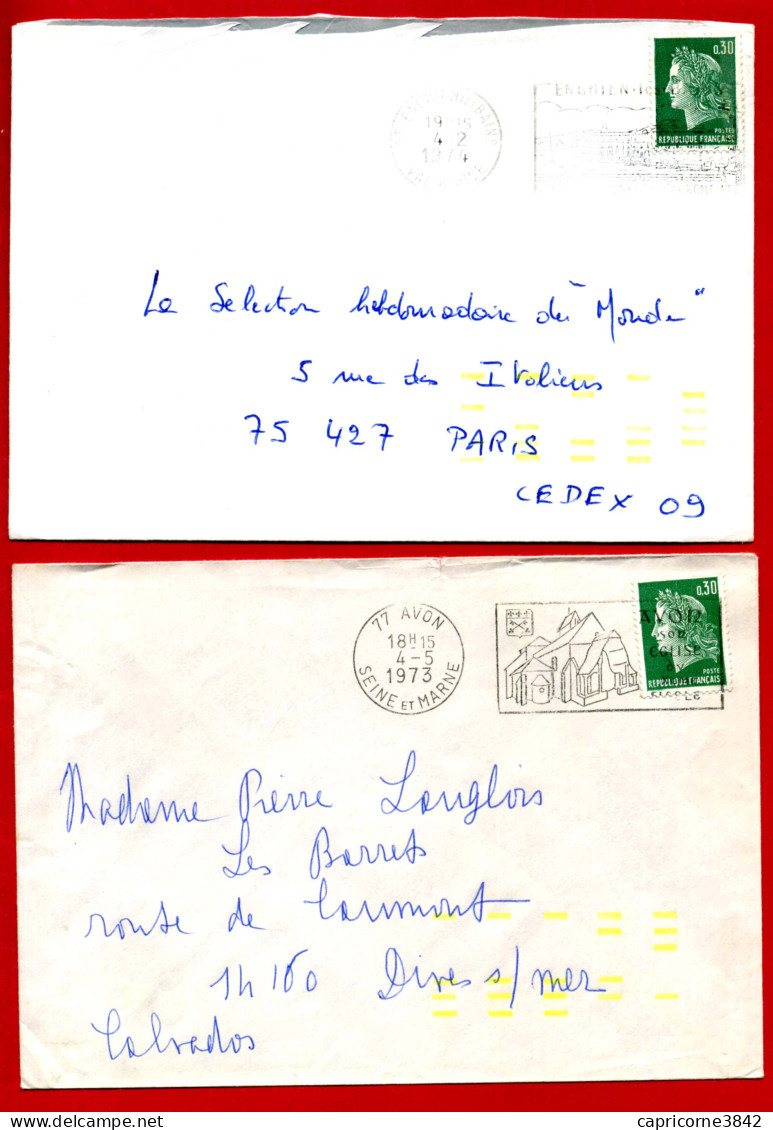 0,30
POSTES
REPUBLIQUE FRANÇAISE
ENGHIEN-les-
19 15
4-2
1974
La Selection hebdomadaire du "Monde"
5 rue des Italiens
75 427 PARIS
CEDEX 09
77 AVON
18H15
4-5
1973
SEINE ET MARNE
AVON
son
EGLISE
0,30
POSTES
REPUBLIQUE FRANÇAISE
Madame Pierre Langlois
Les Barrets
route de Caumont
14 160 Dives s/mer
Calvados
delcampe.net
capricorne3842